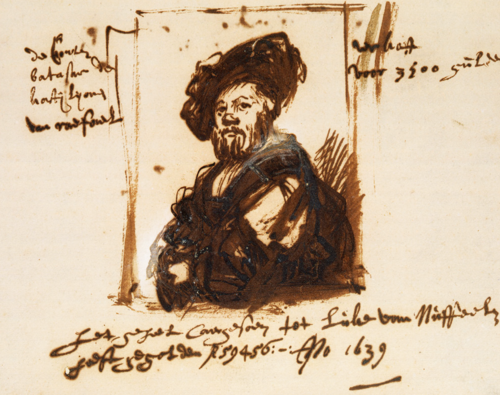 de Conte
batasar de
kastylyone
van raefael
verkoft
voor 3500 gulden
het geheel caergesoen tot Luke van Nuffeelen
heeft gegolden f 59456:- Ao 1639